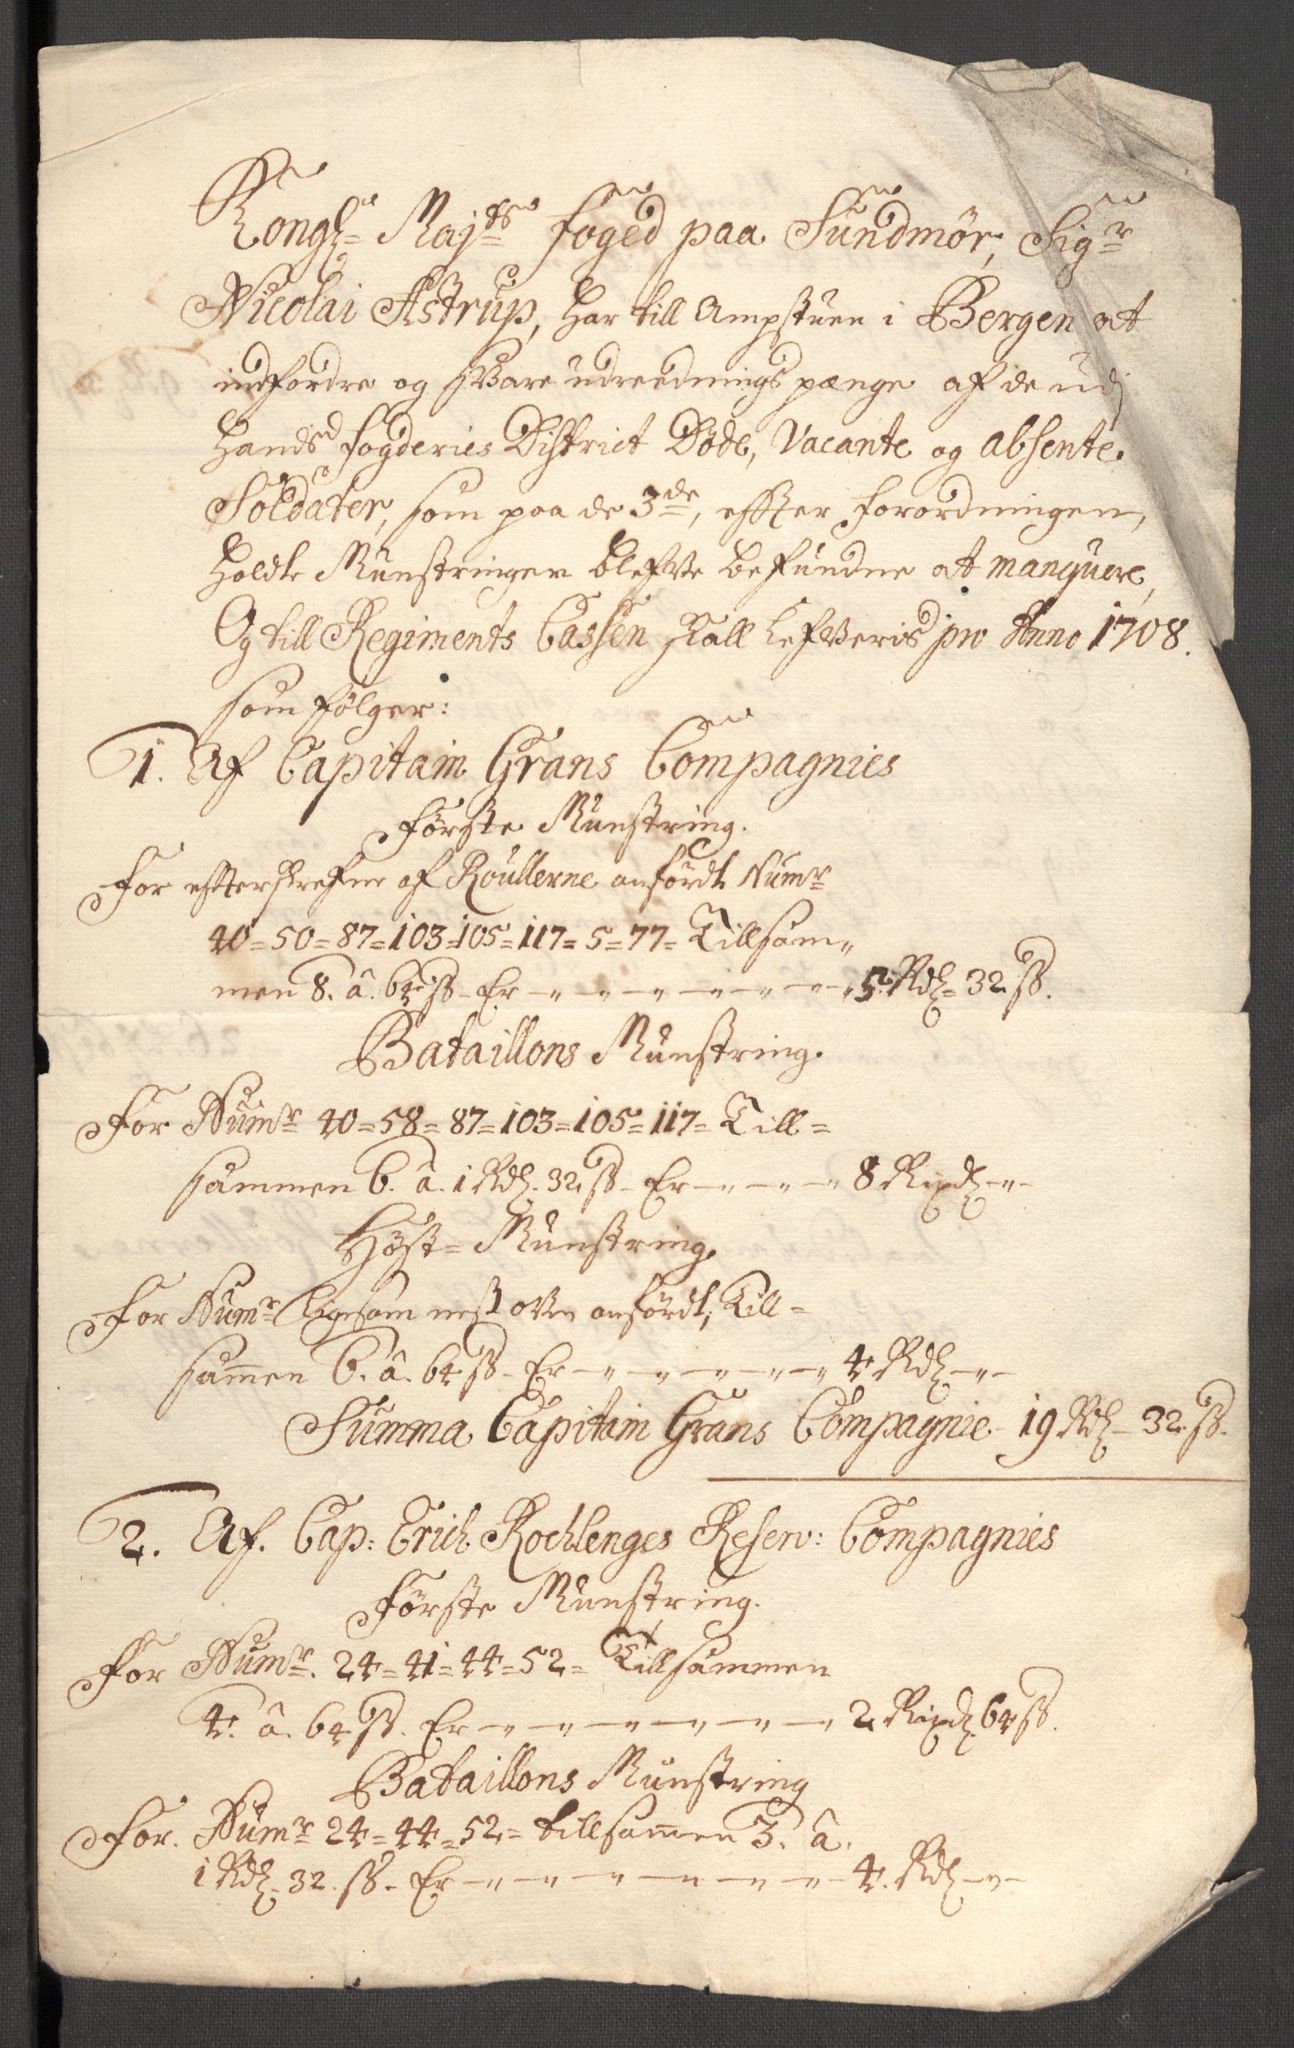 Kongl= Maj=ts foged paa Sundmør, Sigr
Nicolai Astrup, har till Ampstuen i Bergen at
indfordre og sVare udreednings pænge af de udj
Hands fogderies District Døde, Vacante og absente
Soldater, som paa de 3de, effter forordningen,
holdte Munstringer blefve befundne at manquere,
Og till Regiments Cassen skall lefveris pro Anno 1708.
som følger:
1. Af Capitain Grans Compagnies
Første Munstring.
For effterskrefne af Roullerne anførdte Numr
40=50=87=103=105=117=5=77= Tillsam=
men 8. â. 64 ß - Er - " - " - " - " - " - 5. Rdl= 32 ß.
Bataillons Munstring.
For Numr 40=58=87=103=105=117= Till=
sammen 6. â. 1 Rdl. 32 ß - Er - " - " - " 8 Rixdl - " -
Høst= Munstring.
For Numr ligesom nest oVen anførdt, Till=
sammen 6. â. 64 ß - Er - " - " - " - " - " 4 Rdl - " -
Summa Capitain Grans Compagnie - 19 Rdl - 32 ß.
2. Af. Cap: Erich Rochlenges Reserv: Compagnies
Første Munstring.
For Numr. 24=41=44=52= Tillsammen
4. â. 64 ß. Er - " - " - " - " - " - " 2 Rixdl 64 ß.
Bataillons Munstring
For. Numr 24=44=52= tillsammen 3. â.
1 Rdl. 32. ß. Er - " - " - " - " - " - " - 4. Rdl - " -